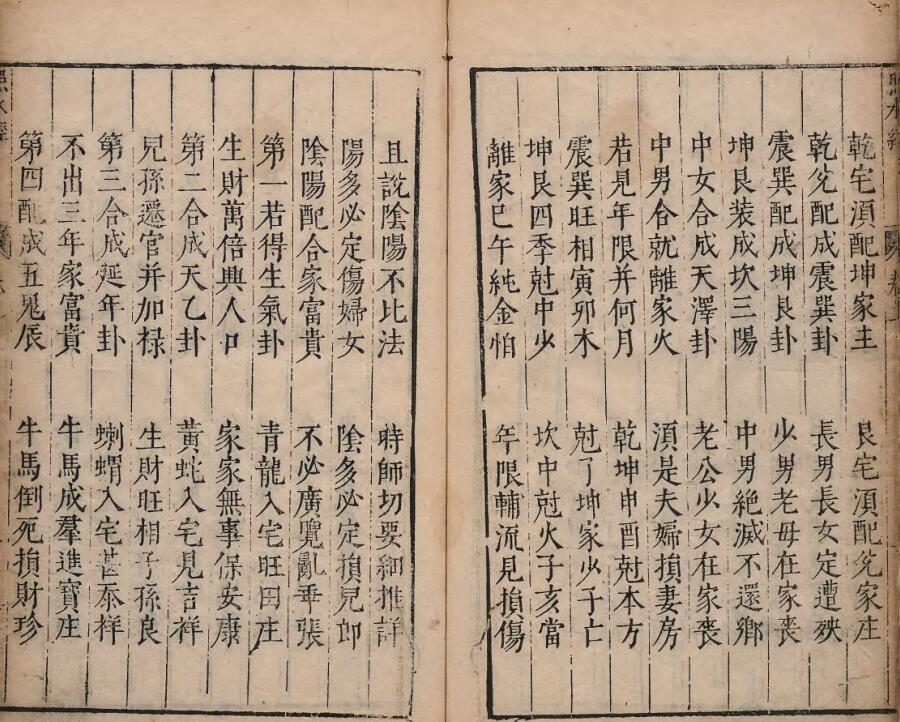 乾宅湏配坤家主 艮宅湏配兊家庄
乾兊配成震巽卦 長男長女定遭殃
震巽配成坤艮卦 少男老母在家丧
坤艮装成坎三陽 中男絶滅不還鄉
中女合成天澤卦 老公少女在家丧
中男合就離家火 湏是夫婦損妻房
若見年限并何月 乾坤申酉尅本方
震巽旺相寅夘木 尅了坤家少子亡
坤艮四季尅中少 坎中尅火子亥當
離家巳午純金怕 年限輔流見損傷
且説陰陽不比法 時師切要細推詳
陽多必定傷婦女 陰多必定損兒郎
陰陽配合家富貴 不必廣覽亂乖張
第一若得生氣卦 青龍入宅旺田庄
生財萬倍興人口 家家無事保安康
第二合成天乙卦 黃蛇入宅見吉祥
兒孫遷官并加禄 生財旺相子孫良
第三合成延年卦 蝲蝟入宅甚泰祥
不出三年家富貴 牛馬成羣進寶庄
第四配成五鬼辰 牛馬倒死損財珍